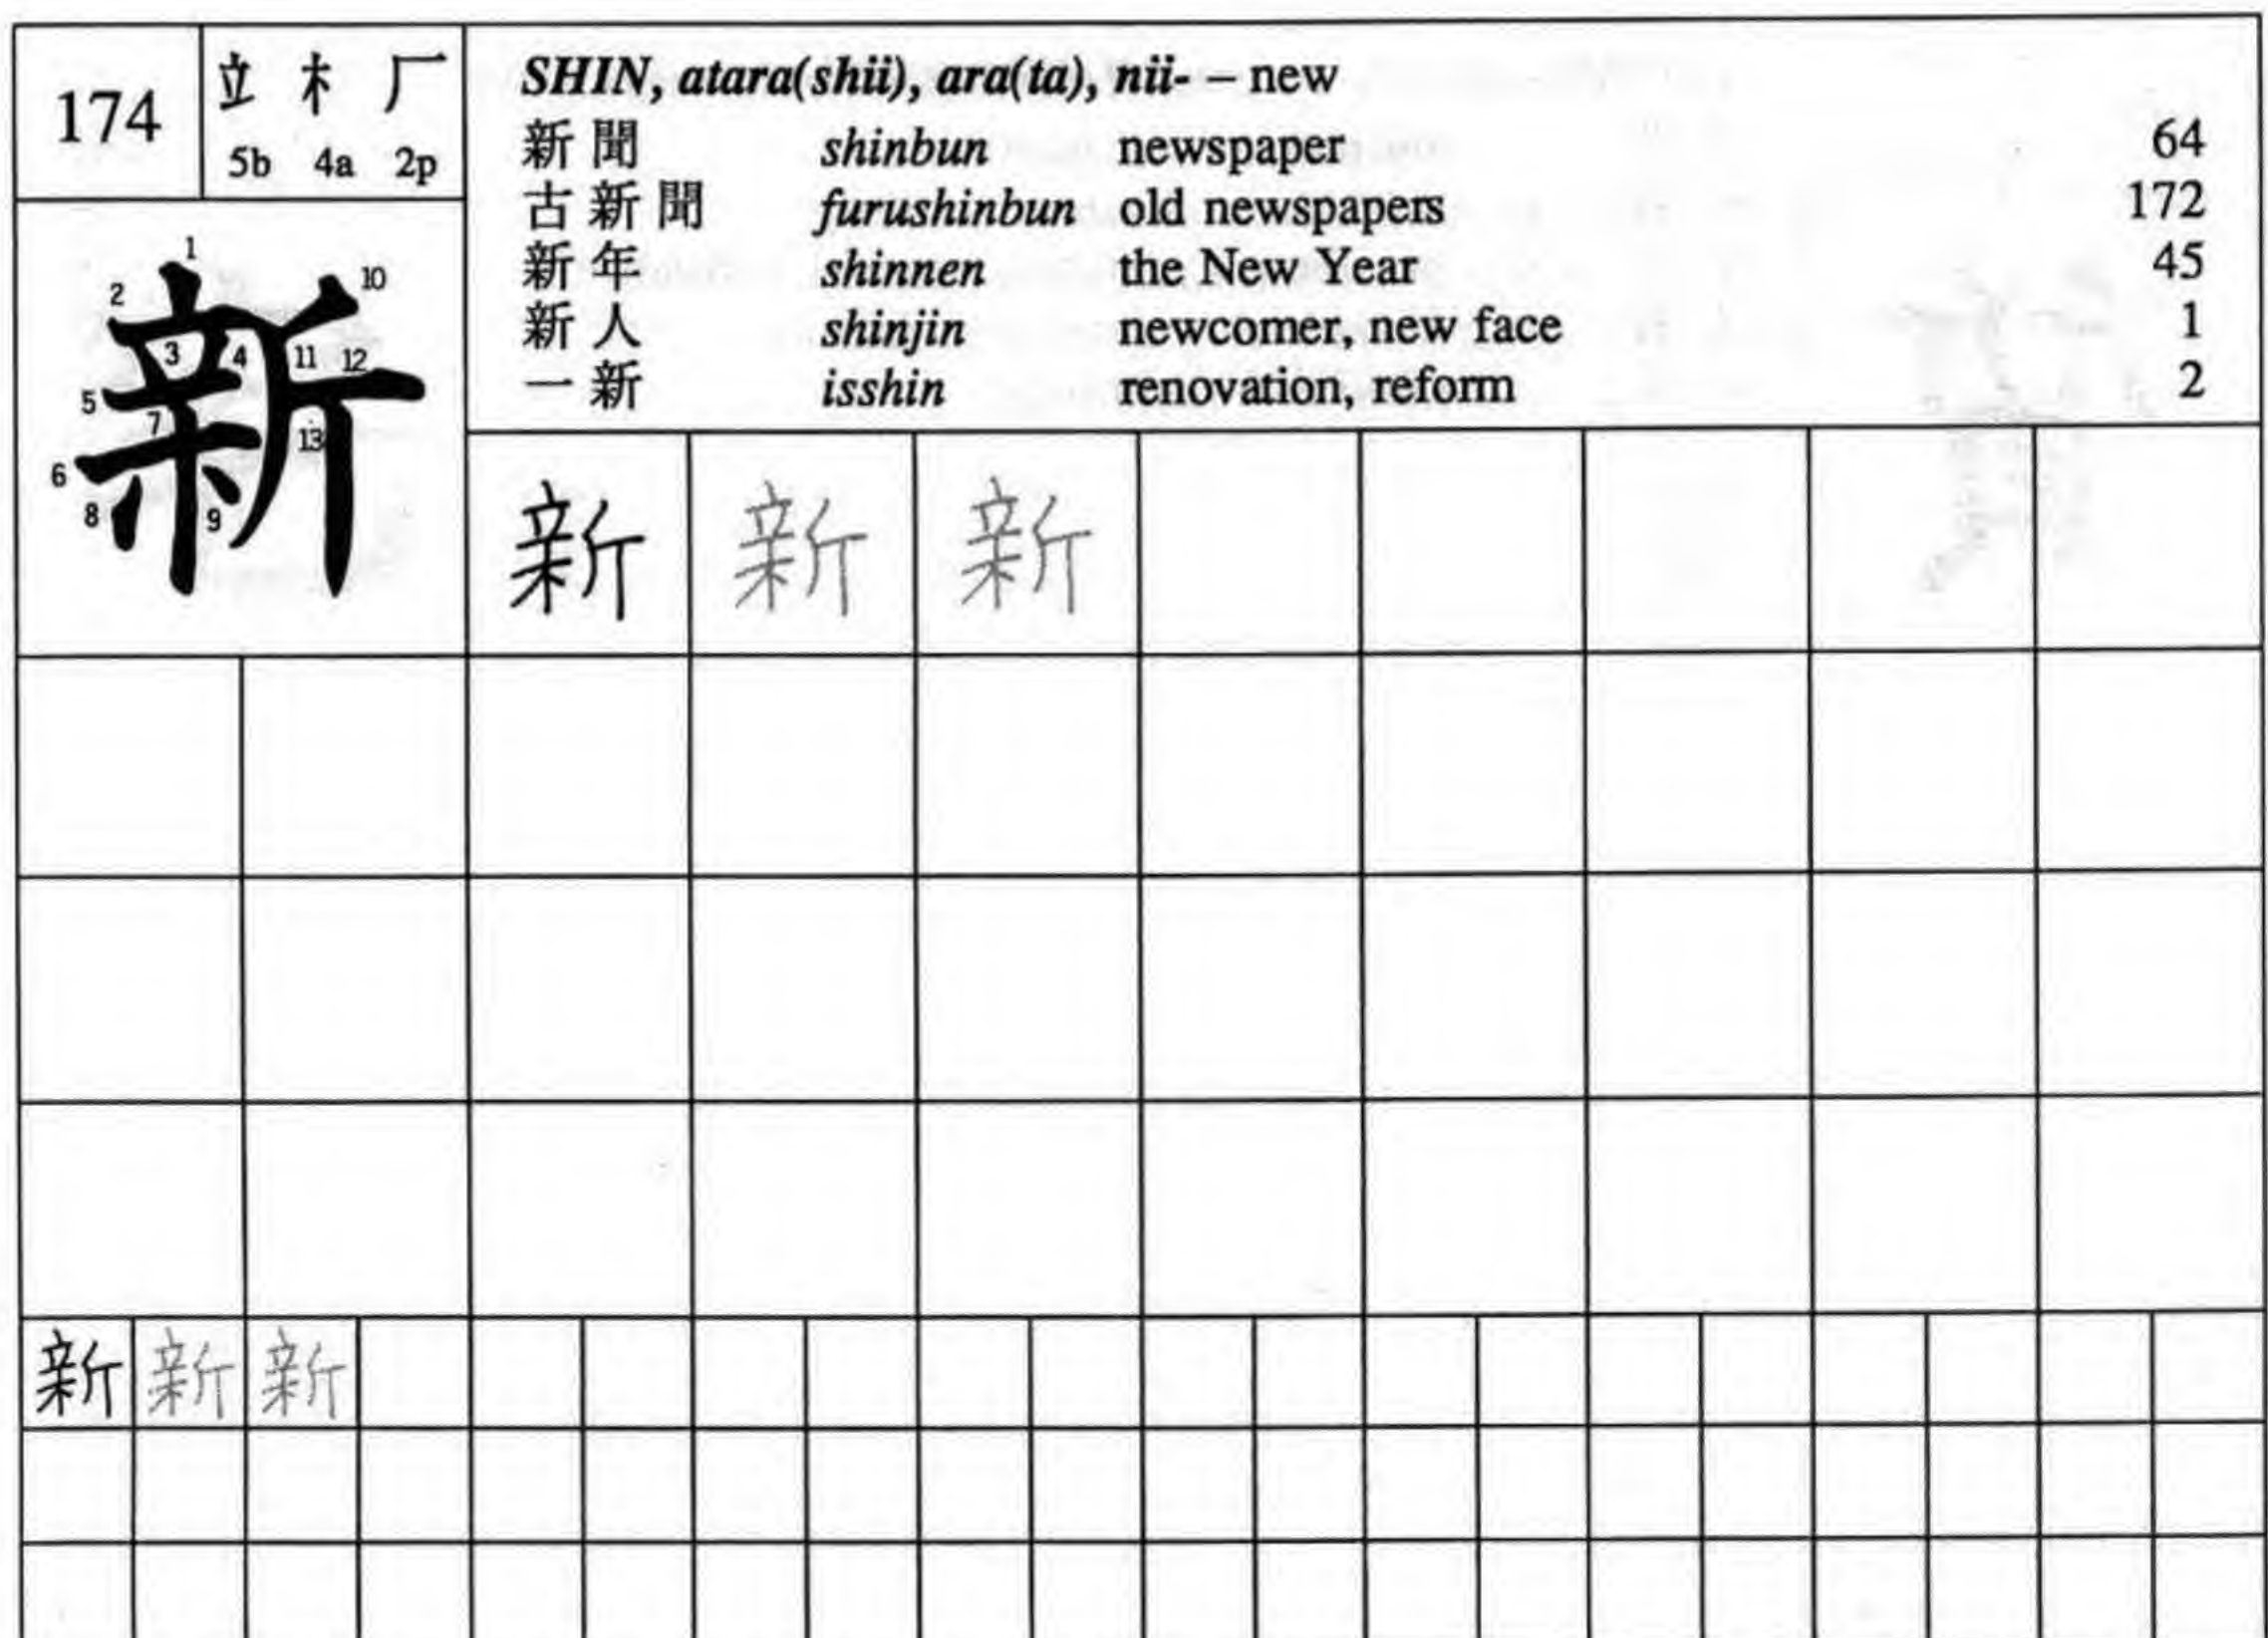 174
立 木 厂
5b 4a 2p
SHIN, atara(shii), ara(ta), nii- – new
新聞 shinbun newspaper 64
古新聞 furushinbun old newspapers 172
新年 shinnen the New Year 45
新人 shinjin newcomer, new face 1
一新 isshin renovation, reform 2
新
1 2 3 4 5 6 7 8 9 10 11 12 13
新 新 新
新 新 新